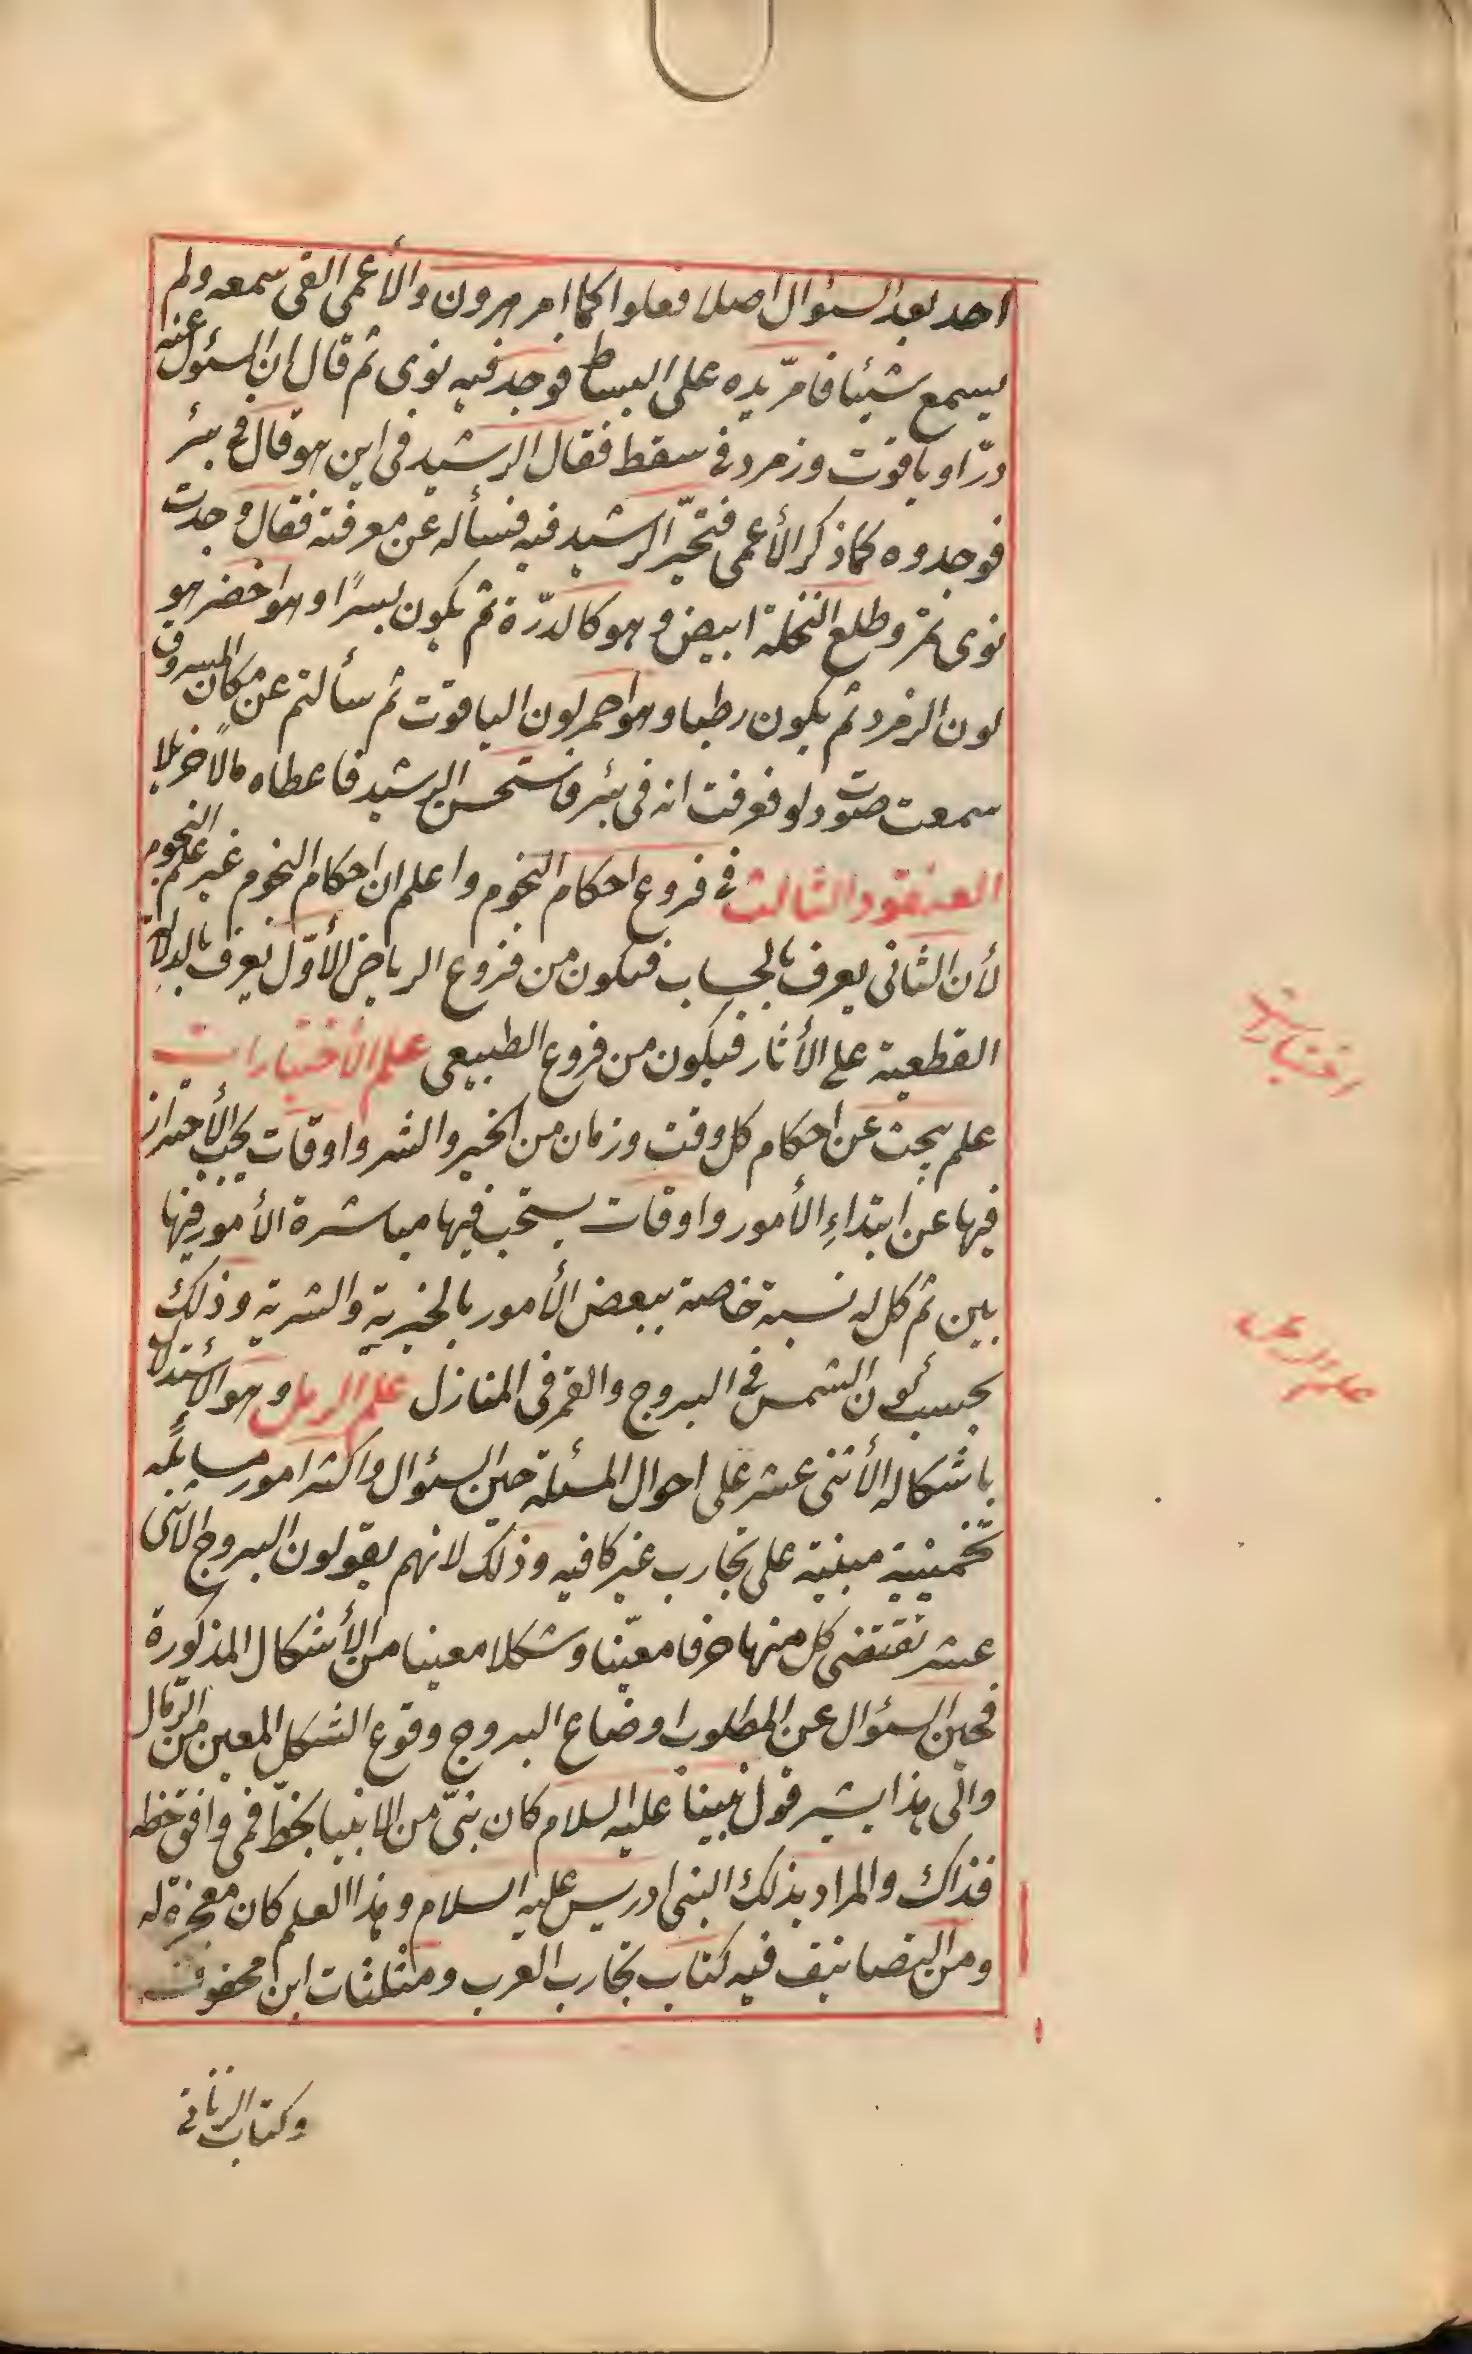 احد بعد السئوال اصلا فعلوا كما امر هرون والأعمى القى سمعه ولم
يسمع شيئا فامرّ يده على البساط فوجد فيه نوى ثم قال ان المسئول عنه
درّ او ياقوت وزمرد فى سقط فقال الرشيد فى اين هو قال فى بئر
فوجدوه كما ذكر الأعمى فتحيّر الرشيد فيه فسأله عن معرفته فقال وجدت
نوى تمر وطلع النخلة ابيض وهو كالدرّة ثم يكون بسرًا وهو اخضر هو
لون الزمرد ثم يكون رطبا وهو احمر لون الياقوت ثم سألتم عن مكان المسروق
سمعت صوت دلو فعرفت انه فى بئر فاستحسن الرشيد فاعطاه مالًا جزيلا
العنقود الثالث فى فروع احكام النجوم واعلم ان احكام النجوم غير علم النجوم
لأن الثانى يعرف بالحساب فيكون من فروع الرياض الأوّل يعرف بالدلالة
القطعية على الأثار فيكون من فروع الطبيعى علم الأختيارات
علم يبحث عن احكام كل وقت وزمان من الخير والشر واوقات يجب الأحتراز
فيها عن ابتداءِ الأمور واوقات يستحب فيها مباشرة الأمور فيها
بين ثم كل له نسبة خاصة ببعض الأمور بالخيرية والشرية وذلك
بحسب كون الشمس فى البروج والقمر فى المنازل علم الرمل وهو الاستدلال
باشكاله الأثنى عشر على احوال المسئلة حين السئوال واكثر امور مسايله
تخمينية مبنية على تجارب غير كافيه وذلك لانهم يقولون البروج الاثنى
عشر تقتضى كل منها حرفا معيّنا وشكلا معينا من الأشكال المذكورة
فحين السئوال عن المطلوب اوضاع البروج وقوع الشكل المعين من الرّمال
والى هذا يشير قول نبينا عليه السلام كان نبىّ من الانبيا يخطّ فمن وافق خطه
فذاك والمراد بذلك النبى ادريس عليه السلام وهذا العلم كان معجزة له
ومن التصانيف فيه كتاب تجارب العرب ومثلثات ابن محفوف
وكتاب الزناتى
اختيارات
علم الرمل